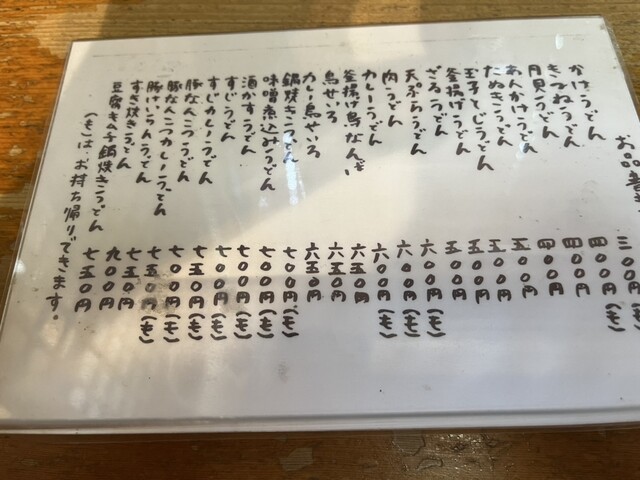 お品書
かけうどん 三〇〇円(モ)
きつねうどん 四〇〇円
月見うどん 四〇〇円
あんかけうどん 四〇〇円
たぬきうどん 五〇〇円
玉子とじうどん 五〇〇円
釜揚げうどん 五〇〇円
ざるうどん 五〇〇円
天ぷらうどん 六〇〇円(モ)
肉うどん 六〇〇円(モ)
カレーうどん 六〇〇円(モ)
釜揚げ鳥なんば 六五〇円
鳥せいろ 六五〇円
カレー鳥せいろ 六五〇円
鍋焼きうどん 七〇〇円(モ)
味噌煮込みうどん 七〇〇円(モ)
酒かすうどん 七〇〇円(モ)
すじうどん 七〇〇円(モ)
すじカレーうどん 七五〇円(モ)
豚なんこつうどん 七〇〇円(モ)
豚なんこつカレーうどん 七五〇円(モ)
豚けいらんうどん 七五〇円
すき焼きうどん 九〇〇円
豆腐きのこ鍋焼きうどん 七五〇円
(モ)は、お持ち帰りできます。